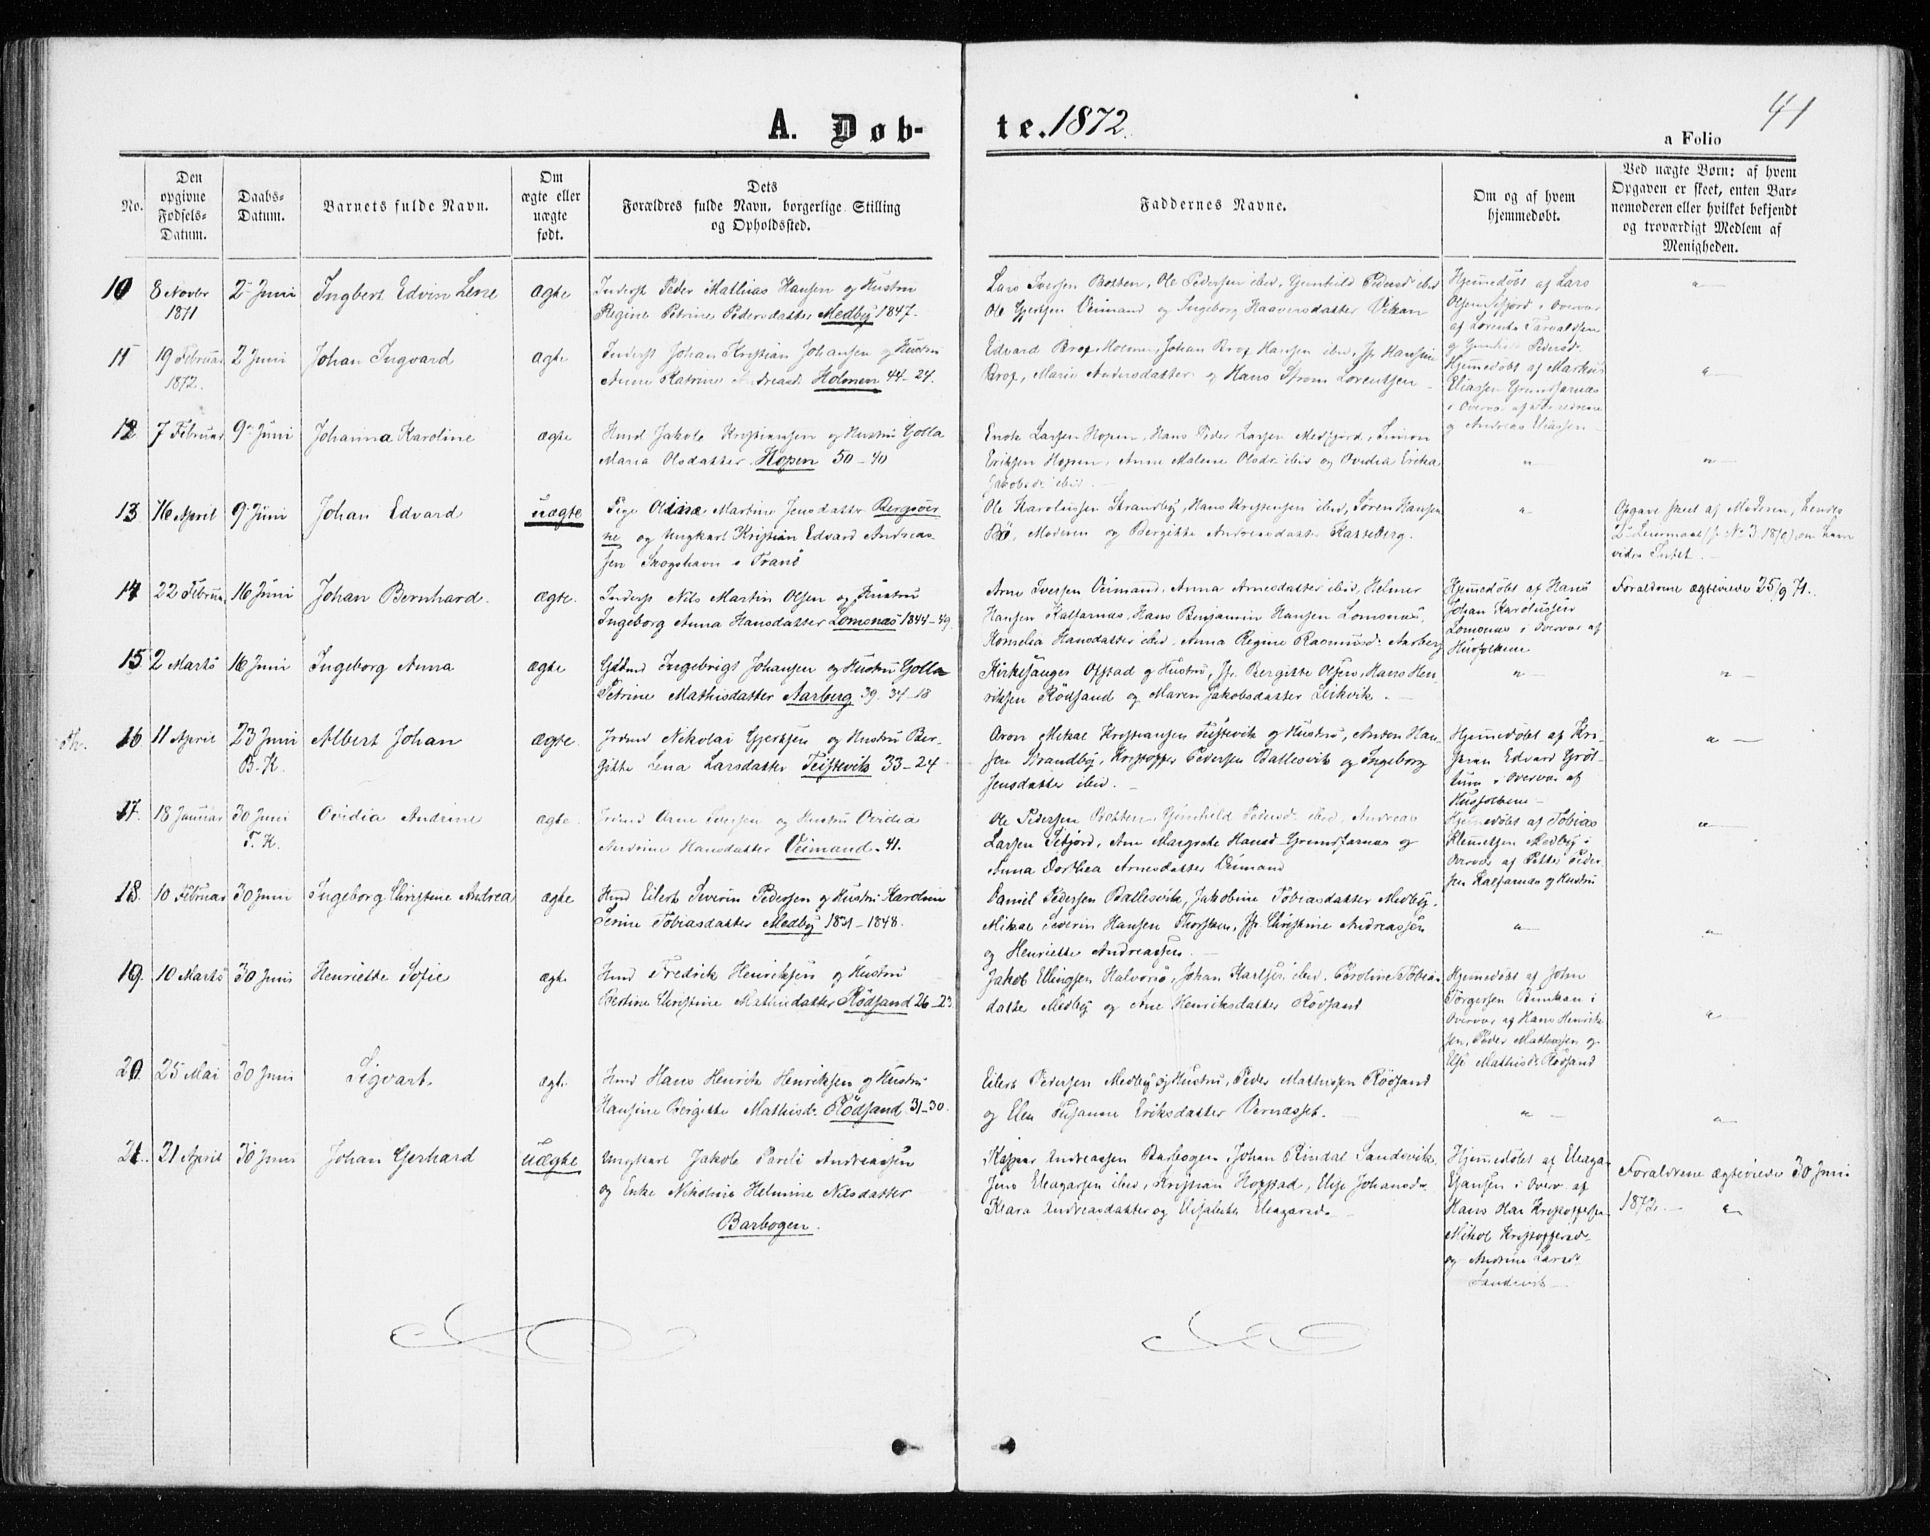 41
A. Døb-te. 1872.
a Folio
No.
Den opgivne Fødsels-Datum.
Daabs-Datum.
Barnets fulde Navn.
Om ægte eller uægte født.
Dets Forældres fulde Navn, borgerlige Stilling og Opholdssted.
Faddernes Navne.
Om og af hvem hjemmedøbt.
Ved uægte Børn: af hvem Opgaven er skeet, enten Barnemoderen eller hvilket bekjendt og troværdigt Medlem af Menigheden.
10 8 Novbr 1871 2 Juni Ingbert Edvin Lene ægte
Inderst Peder Mathias Hansen og Hustru
Regine Petrine Pedersdatter Medby 1847.
Lars Iversen Botten, Ole Pedersen ibid, Gunhild Pedersd ibid
Ole Gjertsen Veimand og Ingeborg Haavensdatter Vikan
Hjemmedøbt af Lars
11 19 Februar 1872. 2 Juni Johan Ingvard ægte
Inderst Johan Kristian Johansen og Hustru
Anne Katrine Andreasd Holmen 44-24.
Edvard Brox Holmen, Johan Brox Hansen ibid, Jfr Hansine
Brox, Marie Andersdatter og Hans Strøm Lorentsen
Hjemmedøbt af Markus
Eliassen Grundfarnæs
og Andreas Eliassen
12 7 Februar 9 Juni Johanna Karoline ægte
Husmd Jakob Kristiansen og Hustru Golla
Maria Olsdatter Hopen 50-40
Enok Larsen Hopen, Hans Peder Larsen Medfjord, Simon
Eriksen Hopen, Anne Malene Olsdr ibid og Ovidia Erika
Jakobsdr ibid.
13 16 April 9 Juni Johan Edvard uægte
Pige Oldine Martine Jensdatter Bergsøer
ne og Ungkarl Kristian Edvard Andrea-
sen Skogshavn i Tranø
Ole Karolussen Strandby, Hans Kristensen ibid, Søren Hansen
Bø, Moderen og Bergitte Andreasdatter Skatseberg.
Opgave skeet af Moderen, hendes
14 22 Februar 16 Juni Johan Bernhard. ægte.
Inderst Nils Martin Olsen og Hustru
Ingeborg Anna Hansdatter Lomsnæs 1844-49.
Arne Iversen Veimand, Anna Arnesdatter ibid, Helmer
Hansen Kalfarnæs, Hans Benjamin Hansen Lomsnæs,
Kornelia Hansdatter ibid, Anna Regine Rasmusd. Aarberg
Hjemmedøbt af Hans
Johan Karolussen
Lomsnæs i Overvær af
Husfolkene
Forældrene ægteviede 25/9 71.
15 2 Marts 16 Juni Ingeborg Anna ægte
Gdbmd Ingebrigt Johansen og Hustru Golla
Petrine Mathisdatter Aarberg 39. 34-18
Kirkesanger Opstad og Hustru, Jfr Bergitte Olsen, Hans Hen
riksen Rødsand og Maren Jakobsdatter Leikvik.
16 11 April 23 Juni B.K. Albert Johan ægte
Nikolai Gjertsen og Hustru Ber-
gitte Lena Larsdatter Teistevik 33-24
Aron Mikal Kristiansen Teistevik og Hustru, Anton Han-
sen Strandby, Kristoffer Pedersen Ballesvik og Ingeborg
Jensdatter ibid.
Hjemmedøbt af Kri-
stian Edvard Grøt-
tum i Overvær af
Husfolkene
17. 18 Januar 30 Juni T.K. Ovidia Andrine ægte
Arne Iversen og Hustru Ovidia
Andrine Hansdatter Veimand. 41.
Ole Pedersen Botten, Gunhild Pedersd. ibid, Andreas
Larsen Sifjord, Ane Margrete Hansd Grundfarnæs og
Anna Dorthea Arnesdatter Veimand
Hjemmedøbt af Tobias
Klemetsen Medby i
Overvær af Petter Peder
sen Kalfarnæs og Hustru
18. 10 Februar 30 Juni Ingeborg Christine Andrea ægte
Husmd Eilert Severin Pedersen og Hustru Karoline
Serine Tobiasdatter Medby 1841-1848.
Daniel Pedersen Ballesvik, Jakobine Tobiasdatter Medby,
Mikal Severin Hansen Thorsken, Jfr Christine Andreassen
og Henriette Andreassen.
19. 10 Marts 30 Juni Henriette Sofie ægte
Husmd Fredrik Henriksen og Hustru
Bertine Christine Mathisdatter Rødsand 26-23.
Jakob Ellingsen Halvorsø, Johan Karlsen ibid. Caroline Tobias-
datter Medby og Ane Henriksdatter Rødsand
Hjemmedøbt af John
Torgersen Bunkan i
Overvær af Hans Henrik
sen, Peder Mathissen og
Else Mathisdr Rødsand
20. 25 Mai 30 Juni Sigvart. ægte
Husmd Hans Henrik Henriksen og Hustru
Hansine Bergitte Mathisdr. Rødsand 31-30.
Eilert Pedersen Medby og Hustru, Peder Mathissen Rødsand
og Elen Susanna Eriksdatter Vernæsset.
21. 21 April 30 Juni Johan Gerhard uægte
Ungkarl Jakob Pareli Andreassen
og Enke Nikoline Helmine Nilsdatter
Barbogen.
Kaspar Andreassen Barbogen, Johan Rindal Sandsvik,
Jens Eleazarsen ibid, Kristian Hopstad, Else Johansd.
Klara Andreasdatter og Elisabeth Eleazarsd.
Hjemmedøbt af Eleazar
Hansen i Overv. af
Hans Kristoffersen
Mikal Kristoffersen
og Andrine Larsd
Sandsvik
Forældrene ægteviede 30 Juni
1872.